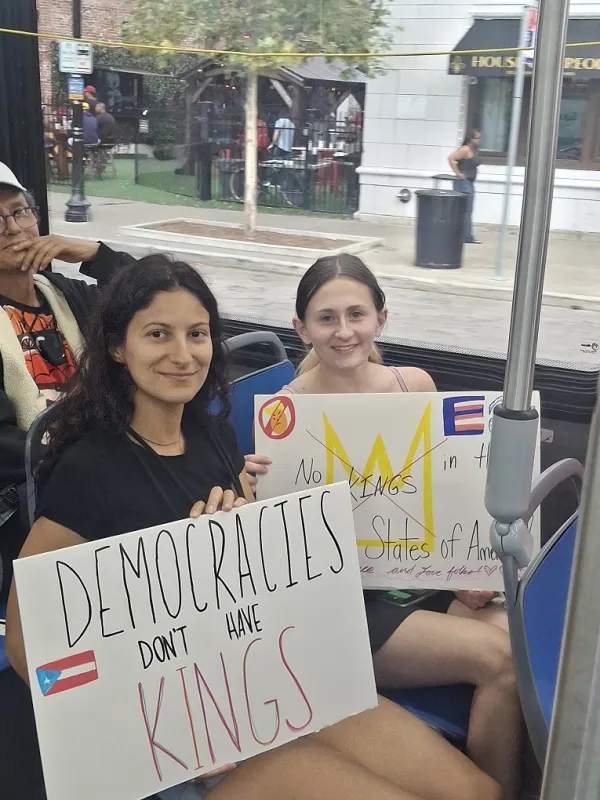 HOUSE
PEO
No KINGS in th
States of Ame
and love folks!
DEMOCRACIES
DON'T HAVE
KINGS